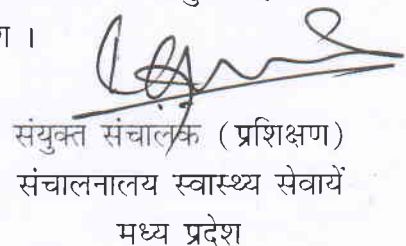 संयुक्त संचालक (प्रशिक्षण)
संचालनालय स्वास्थ्य सेवायें
मध्य प्रदेश